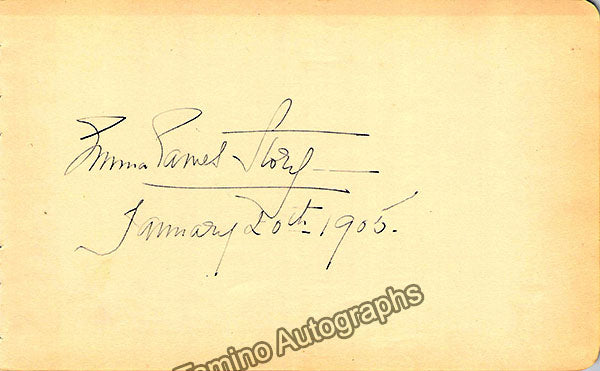 Emma Eames-Story
January 20th-1905.
Tamino Autographs